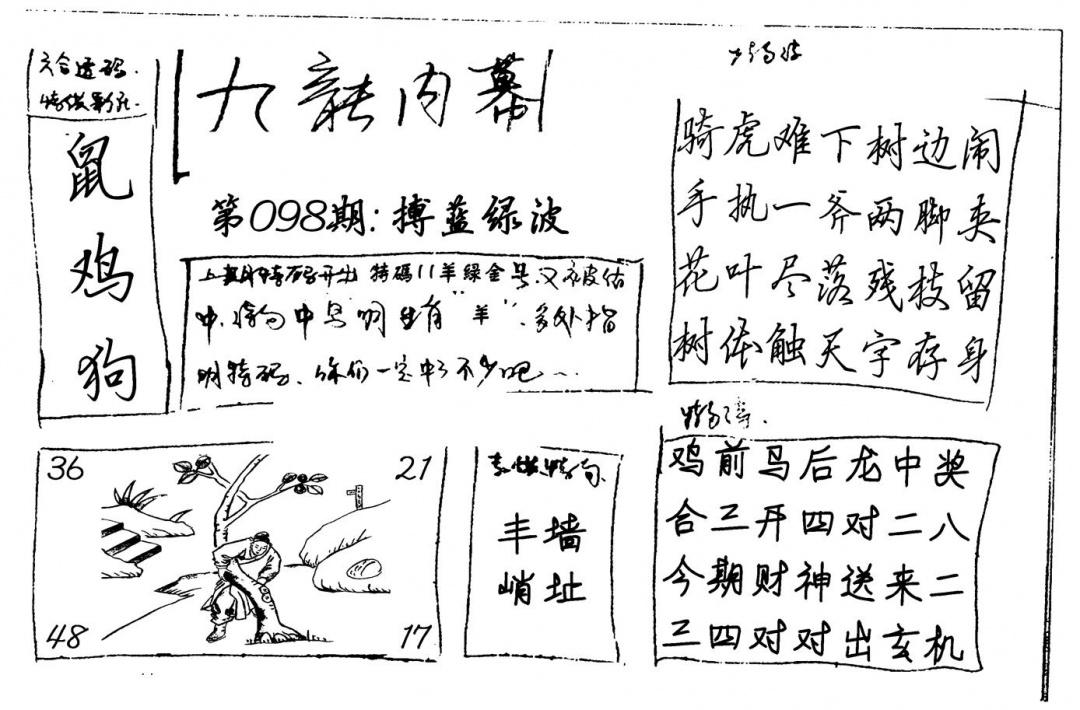 六合透码.
鼠
鸡
狗
九龍内幕
第098期:搏蓝绿波
上期特码开出 特碼11羊绿金号又被估
中,特句中 明 有"羊",多处指
明特码、你们一定中了不少吧…
骑虎难下树边闹
手执一斧两脚夹
花叶尽落残枝留
树体触天字存身
鸡前马后龙中奖
合三开四对二八
今期财神送来二
三四对对出玄机
36
21
48
17
丰墙
峭址